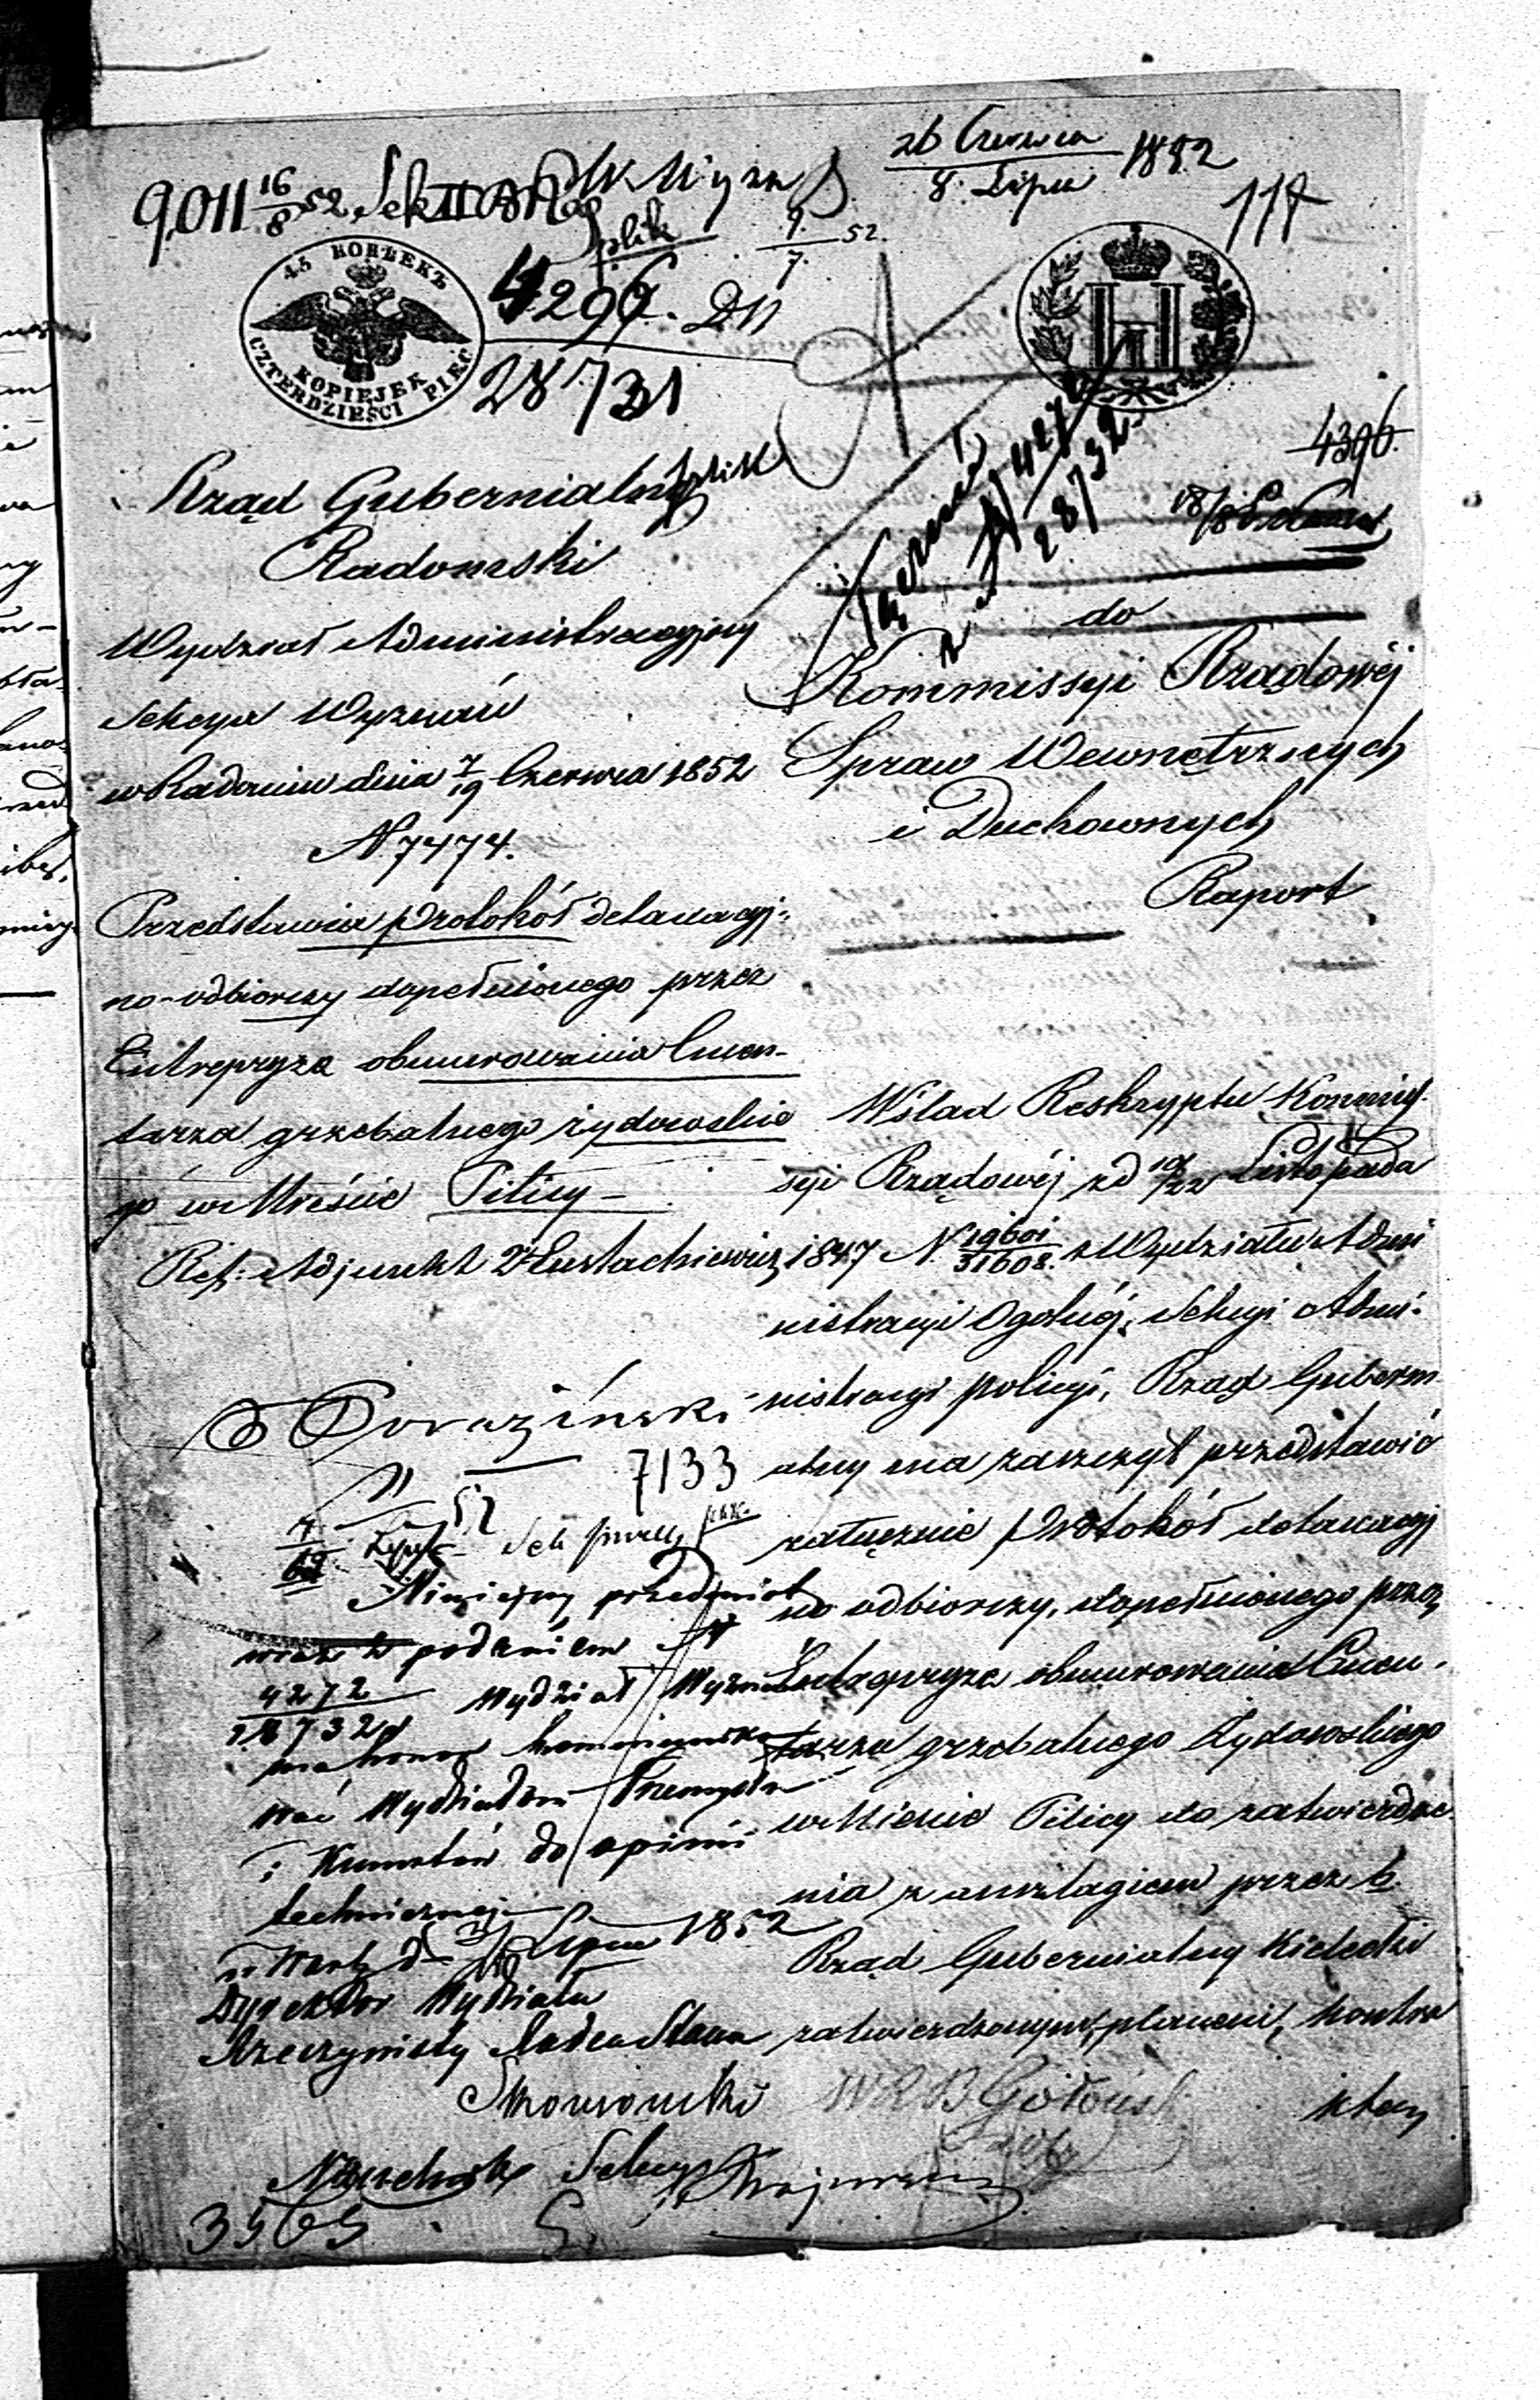 26 Czerwca
8. Lipca 1852
117
9011 16/8 52 Sek II
9/7 52.
45 КОПѢЕКЪ
CZTERDZIEŚCI PIĘĆ
KOPIEJEK
4296. DN
28731
4396.
Rząd Gubernialny
Radomski
Wydział Administracyjny
Sekcya Wyznań
w Radomiu dnia 7/19 Czerwca 1852
N. 7474.
Przedstawia protokół detaxacyj-
no-odbiorczy dopełnionego przez
Entrepryzę obmurowania Cmen-
tarza grzebalnego żydowskie
go w Mieście Pilicy
Ref: Adjunkt Eustachiewicz
4272
28732
do
Kommissyi Rządowéj
Spraw Wewnętrznych
i Duchownych
Raport
W ślad Reskryptu Kommis-
syi Rządowéj zd 10/22 Listopada
1847 N. 19601/31608. z Wydziału Admi
nistracyi Ogólnéj, Sekcyi Admi-
nistracyi policyi, Rząd Guberni
alny ma zaszczyt przedstawić
załącznie protokół detaxacyj
no odbiorczy, dopełnionego przez
Entrepryzę obmurowania Cmen-
tarza grzebalnego Żydowskiego
w Mieście Pilicy do zatwierdze
nia z anszlagiem przez b.
Rząd Gubernialny Kielecki
zatwierdzonym, planem, kontra
ktem
7133
Niniejszy przedmiot
wraz z podaniem N
4272
28732 Wydział Wyznań
ma honor kommuniko
wać Wydziałowi Przemysłu
i Kunsztów do opinii
technicznej
w Warsz d Lipca 1852
Dyrektor Wydziału
Rzeczywisty Radca Stanu
Naczelnik Sekcyi
3565